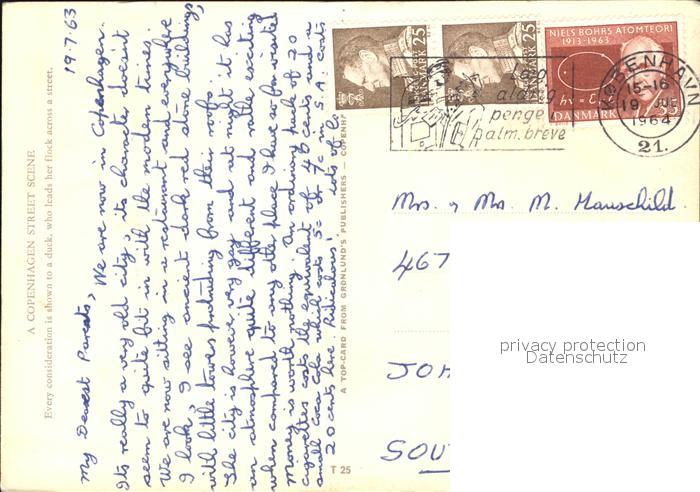 A COPENHAGEN STREET SCENE
Every consideration is shown to a duck, who leads her flock across a street.
19.7.63
My Dearest Parents,
We are now in Copenhagen.
Its really a very old city, its character doesnt
seem to quite fit in with the modern times.
We are now sitting in a restaurant and everywhere
I look, I see ancient dark red stone buildings,
with little towers protruding from their roofs.
The city is however very gay and at night it has
an atmosphere quite different and rather exciting
when compared to any other place I have so far visited
Money is worth nothing. An ordinary pack of 20
cigarettes costs the equivalent of 45 cents and a
small Coca Cola which costs 5c or 7c in S.A. costs
20 cents here. Ridiculous! Lots of lo
A TOP-CARD FROM GRØNLUND'S PUBLISHERS — COPENH
T 25
DANMARK 25
DANMARK 25
NIELS BOHRS ATOMTEORI
1913-1963
hv = E
DANMARK
Læg
aldrig
penge
i alm. breve
KØBENHAV
15-16
19 JUL
1964
21.
Mrs. & Mrs. M. Hauschild.
467
JOH
SOU
privacy protection
Datenschutz